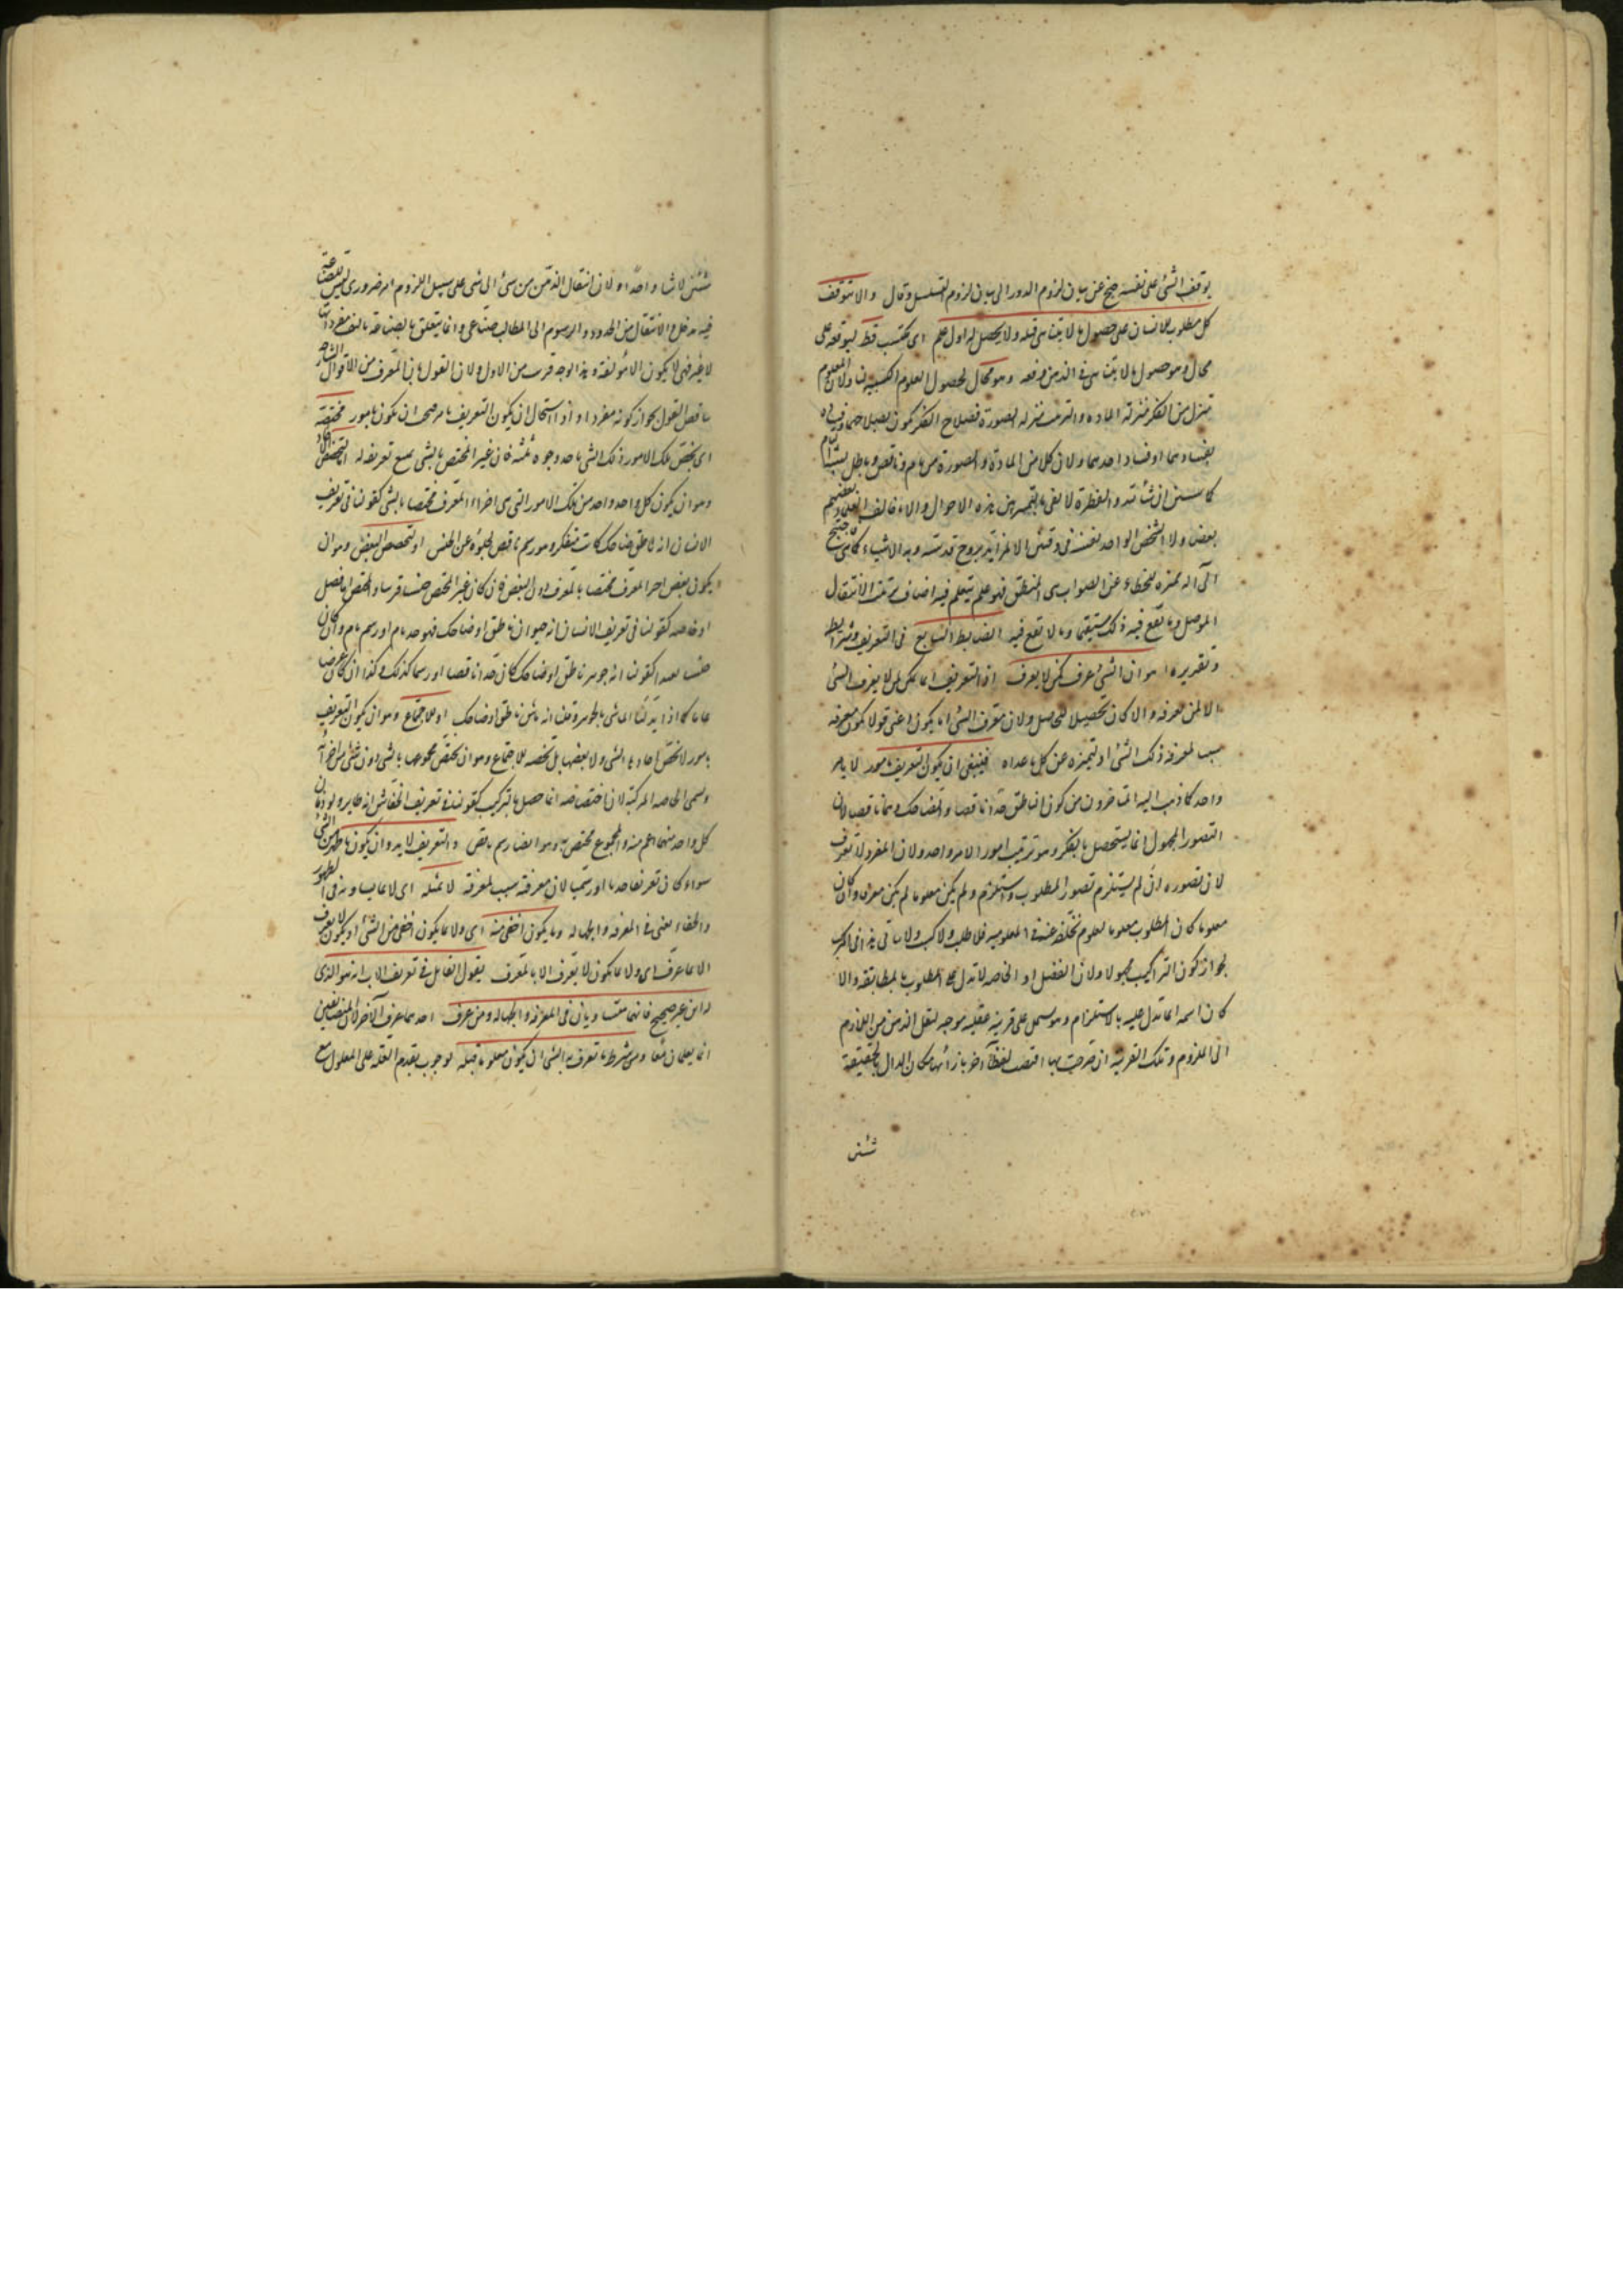 توقف الشئ على نفسه جنح عن بيان لزوم الدور الى بيان لزوم التسلسل وقال والا يتوقف
كل مطلوب للانسان على حصول ما لا يتناهى قبله ولا يحصل له اول علم اى مكتسب قط لتوقفه على
محال وهو حصول ما لا يتناهى فى الذهن دفعه وهو محال لحصول العلوم الكسبية لنا ولان المعلوم
تنزل من الفكر منزله الماده والترتيب منزله الصورة فصلاح الفكر يكون بصلاحهما وفساده
بفسادهما او فساد احدهما ولان كلا من الماده والصورة من تام وناقص وباطل
كما سنبين ان شاء الله والفطرة لا تفى بالتمييز بين هذه الاحوال والا ما خالف العقلاء بعضهم
بعض ولا الشخص الواحد نفسه فى وقتين الا لمن ايد بروح قدسية يريه الاشياء كما هى احتيج
الى آله مميزه للخطاء عن الصواب هى المنطق فهو علم يتعلم فيه اصناف ترتيب الانتقال
الموصل وما يقع فيه ذلك مستقيما وما لا يقع فيه الضابط السابع فى التعريف وشرائطه
وتقريره هو ان الشئ عرف لمن لا يعرف اذ التعريف انما يكون لمن لا يعرف الشئ
لا لمن يعرفه والا كان تحصيلا للحاصل ولان معرف الشئ انما يكون اعنى قولا يكون معرفه
سبب لمعرفه ذلك الشئ او تميزه عن كل ما عداه فينبغى ان يكون التعريف بامور لا بامر
واحد كما ذهب اليه المتاخرون من كون الناطق حدا ناقصا والضاحك رسما ناقصا لان
التصور المجهول انما يستحصل بالفكر وهو ترتيب امور لا امر واحد ولان المفرد لا يعرف
لان تصوره ان لم يستلزم تصور المطلوب واستلزم ولم يكن معلوما لم يكن معرفا وان كان
معلوما كان المطلوب معلوما لعلوم تخلفه عنه فى المعلوميه فلا طلب ولا كسب ولا يتاتى هذا فى المركب
لجواز كون التراكيب مجهولا ولان الفصل او الخاصه لا تدل على المطلوب بالمطابقه والا
كان اسمه انما تدل عليه بالاستلزام وهو مشتمل على قرينه عقليه موجبه لنقل الذهن من اللازم
الى الملزوم وتلك القرينه ان صرحت بها اقتضت لفظا آخر بازائها فكان الدال بالحقيقة
شيئين
شيئين لا شيئا واحدا ولان انتقال الذهن من شئ الى شئ على سبيل اللزوم امر ضرورى ليس للصناعة
فيه مدخل والانتقال من الحدود والرسوم الى المطالب صناعى وانما يتعلق بالصناعه تاليف مفردات
لا غير فهى لا يكون الا مؤلفه وهذا الوجه قريب من الاول ولان القول بان المعرف من الاقوال الشارحه
يناقض القول بجواز كونه مفردا واذا استحال ان يكون التعريف بامر صح ان يكون بامور مختصة
اى تختص تلك الامور ذلك الشئ باحد وجوه ثلثه فان غير المختص بالشئ يمتنع تعريفه له لتخصص الآحاد
وهو ان يكون كل واحد واحد من تلك الامور التى هى اجزاء المعرف مختصا بالشئ كقولنا فى تعريف
الانسان انه ناطق ضاحك كاتب متفكر وهو رسم ناقص لخلوه عن الجنس او لتخصص البعض وهو ان
يكون بعض اجزاء المعرف مختصا بالمعرف دون البعض فان كان غير المختص جنسا قريبا والمختص اما فصل
او خاصه كقولنا فى تعريف الانسان انه حيوان ناطق او ضاحك فهو حد تام او رسم تام وان كان
جنسا بعيدا كقولنا انه جوهر ناطق او ضاحك كان حدا ناقصا او رسما كذلك وكذا ان كان عرضا
عاما كما اذا بدلنا الماشى بالجوهر وقلنا انه ماش ناطق او ضاحك او للاجتماع وهو ان يكون التعريف
بامور لا تختص آحادها الشئ ولا بعضها بل تخصه للاجتماع وهو ان يختص مجموعها بالشئ دون شئ من اجزائه
وتسمى الخاصه المركبه لان اختصاصه انما حصل بالتركيب كقولنا فى تعريف الخفاش انه طاير ولود فان
كل واحد منهما اعم منه والمجموع مختص به وهو ايضا رسم ناقص والتعريف لا بد وان يكون باظهر من الشئ
سواء كان تعريفا حديا او رسميا لان معرفته سبب لمعرفة لا بمثله اى لا بما يساويه فى الظهور
والخفاء يعنى فى المعرفه والجهاله وبما يكون اخفى منه اى ولا بما يكون اخفى من الشئ او يكون لا يعرف
الا بما عرف اى ولا بما يكون لا يعرف الا بالمعرف فقول القايل فى تعريف الاب انه هو الذى
له ابن غير صحيح فانهما متساويان فى المعرفه والجهاله ومن عرف احدهما عرف الآخر لان المتضايفين
انما يعلمان معا ومن شرط ما تعرف به الشئ ان يكون معلوما قبله لوجوب تقدم العله على المعلول مع